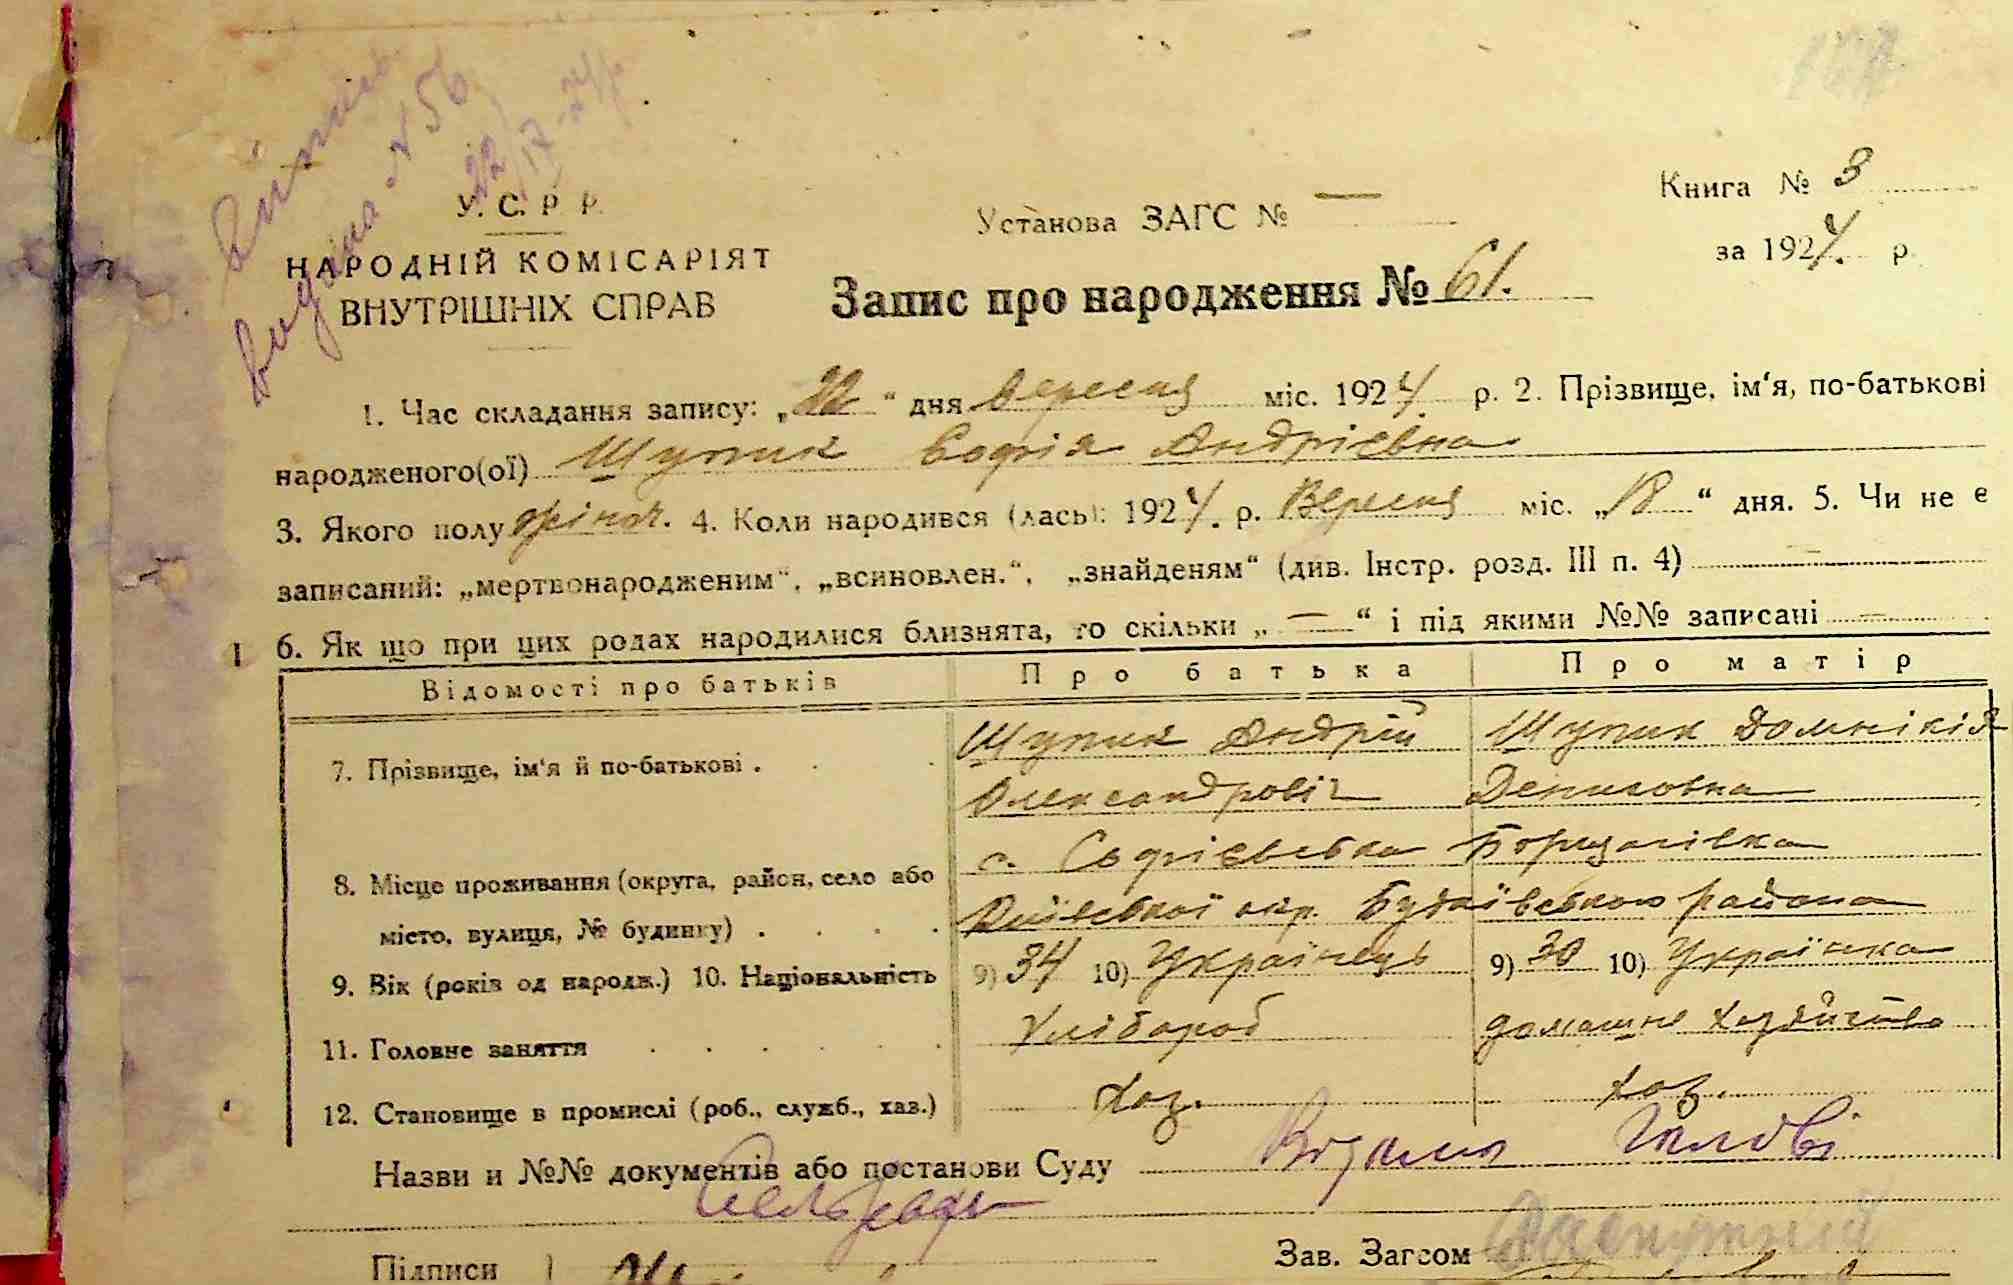 У. С. Р. Р.
НАРОДНІЙ КОМІСАРІЯТ
ВНУТРІШНІХ СПРАВ
видана № 56
Установа ЗАГС № —
Книга № 3
за 1924. р.
Запис про народження № 61.
1. Час складання запису: „22“ дня Вересня міс. 1924. р. 2. Прізвище, ім‘я, по-батькові
народженого(ої) Щупик Софія Андрієвна
3. Якого полу жіноч. 4. Коли народився (лась): 1924. р. Вересня міс. „18“ дня. 5. Чи не є
записаний: „мертвонародженим“, „всиновлен.“, „знайденям“ (див. Інстр. розд. III п. 4) —
6. Як що при цих родах народилися близнята, то скільки „ — “ і під якими №№ записані —
Відомості про батьків Про батька Про матір
7. Прізвище, ім‘я й по-батькові . Щупик Андрій Щупик Домнікія
Олександровіч Денисовна
с. Софієвська Борщагівка
8. Місце проживання (округа, район, село або
місто, вулиця, № будинку) . Київської окр. Будаївського района
9. Вік (років од народж.) 10. Національність 9) 34 10) Українець 9) 30 10) Українка
11. Головне заняття Хлібороб домашнє хозяйство
12. Становище в промислі (роб., служб., хаз.) Хоз. хоз.
Назви и №№ документів або постанови Суду Голові
Сельради
Підписи
Зав. Загсом